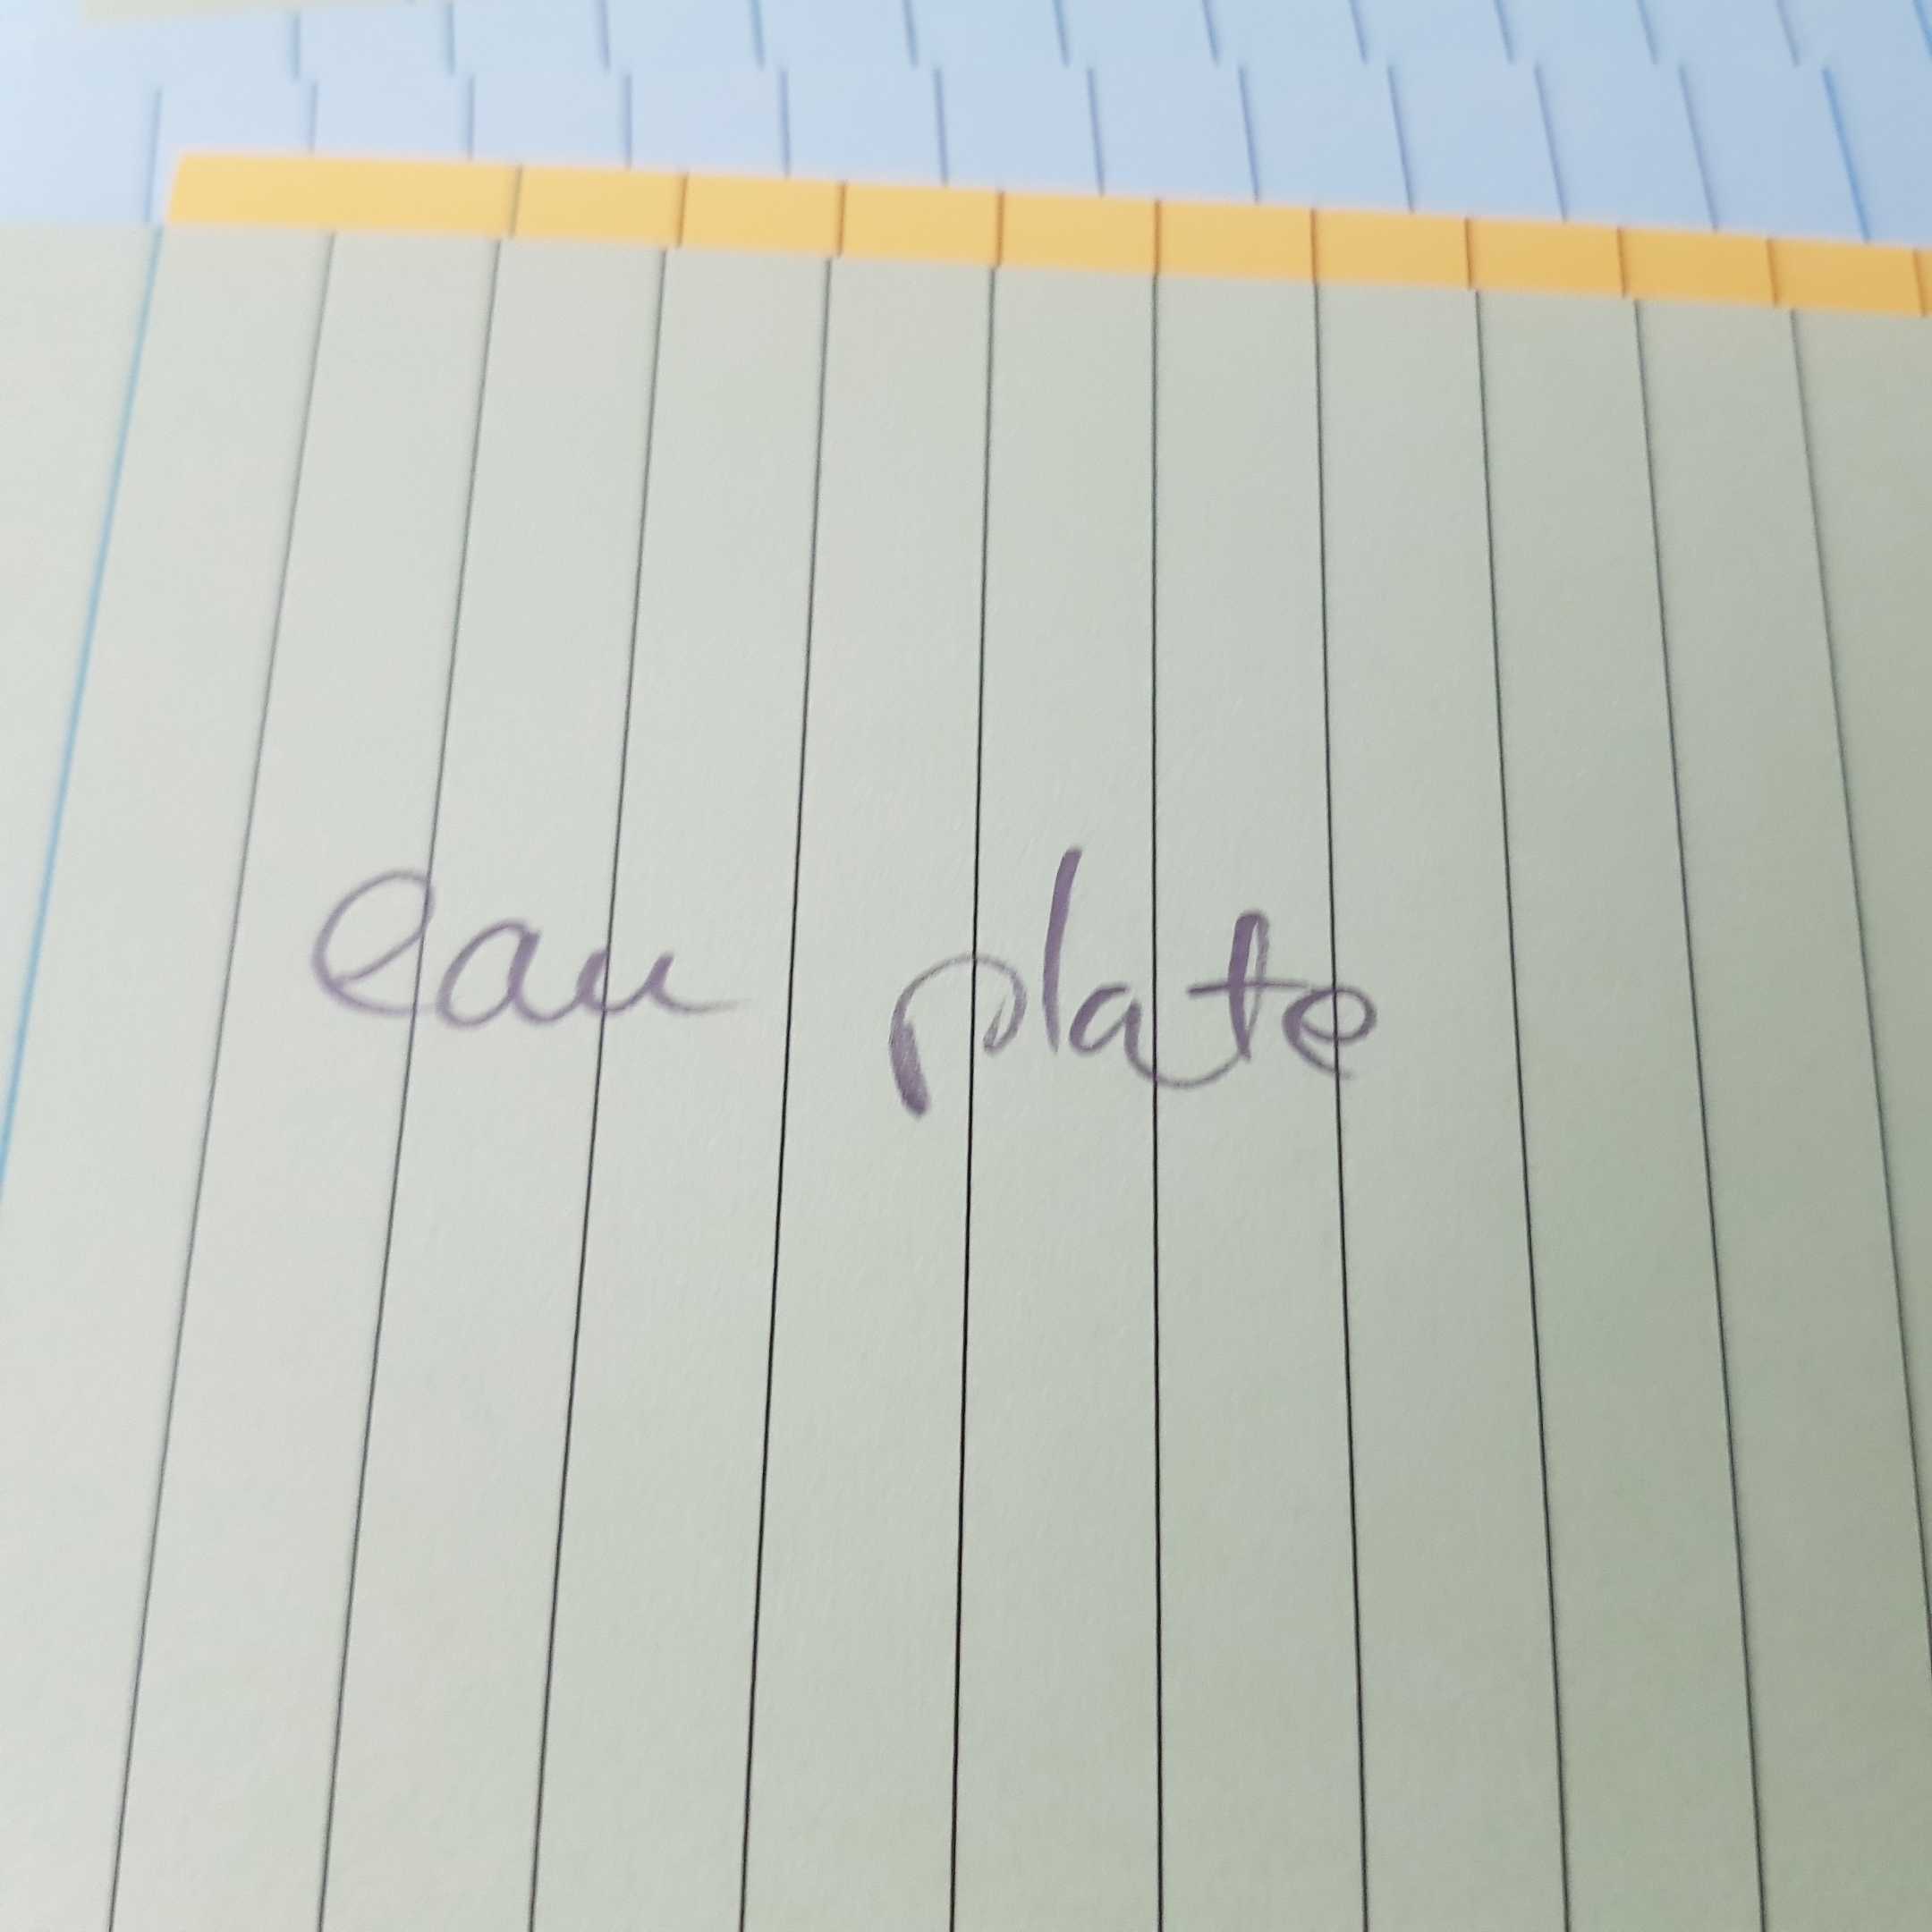 eau plate